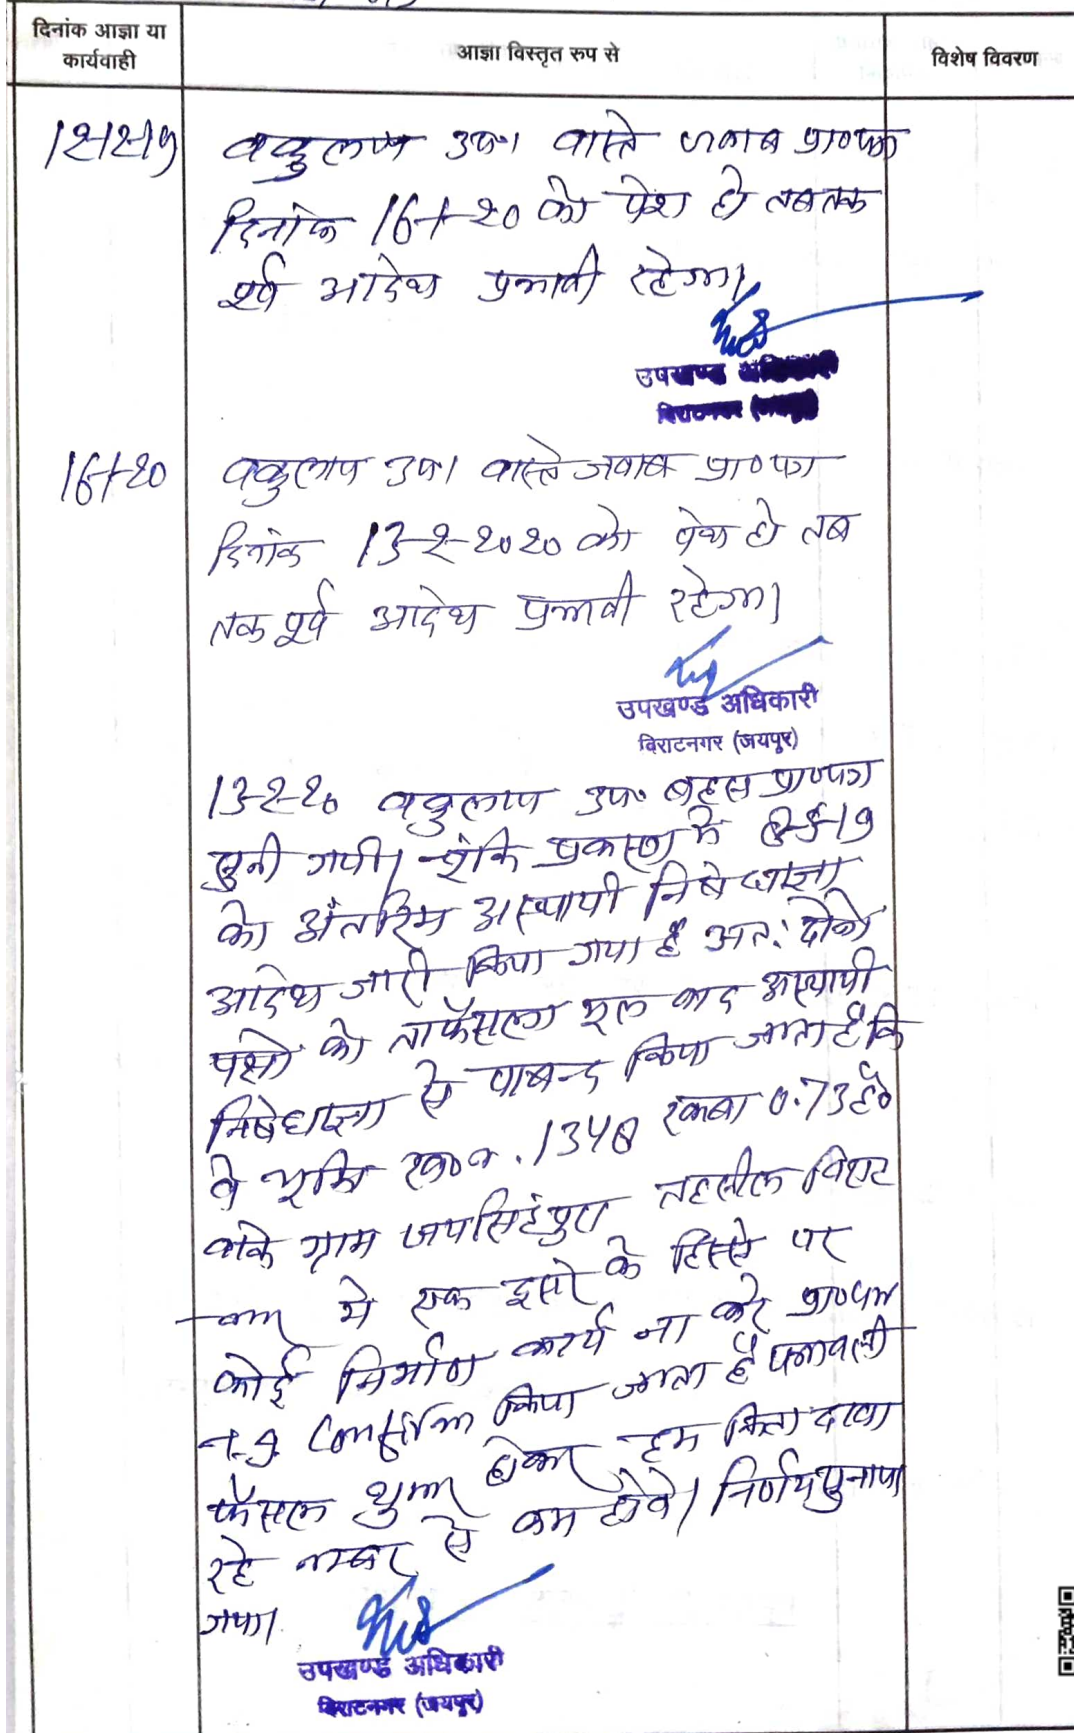 दिनांक आज्ञा या
कार्यवाही
आज्ञा विस्तृत रुप से
विशेष विवरण
वकुलाय उप। वास्ते जवाब प्रा०पत्र
दिनांक 16-1-20 को पेश हो तब तक
पूर्व आदेश प्रभावी रहेगा।
उपखण्ड अधिकारी
विराटनगर (जयपुर)
16-1-20
वकुलाय उप। वास्ते जवाब प्रा०पत्र
दिनांक 13-2-2020 को पेश हो तब
तक पूर्व आदेश प्रभावी रहेगा।
उपखण्ड अधिकारी
विराटनगर (जयपुर)
13-2-20 वकुलाय उप० बहस प्रा०पत्र
सुनी गयी। चूंकि प्रकरण में
को अंतरिम अस्थायी निषेधाज्ञा
आदेश जारी किया गया है अत: दोनो
पक्षो को ताफैसला मूल वाद अस्थायी
निषेधाज्ञा से पाबन्द किया जाता है कि
वे भूमि ख०न०. रकबा 0.73 है०
वाके ग्राम जयसिहंपुरा तहसील विराट
मे एक दूसरे के हिस्से पर
कोई निर्माण कार्य ना करे प्रा०पत्र
Confirm किया जाता है पत्रावली
फैसल शुमार होकर हम किता दावा
रहे नम्बर से कम होवे। निर्णय सुनाया
गया।
उपखण्ड अधिकारी
विराटनगर (जयपुर)